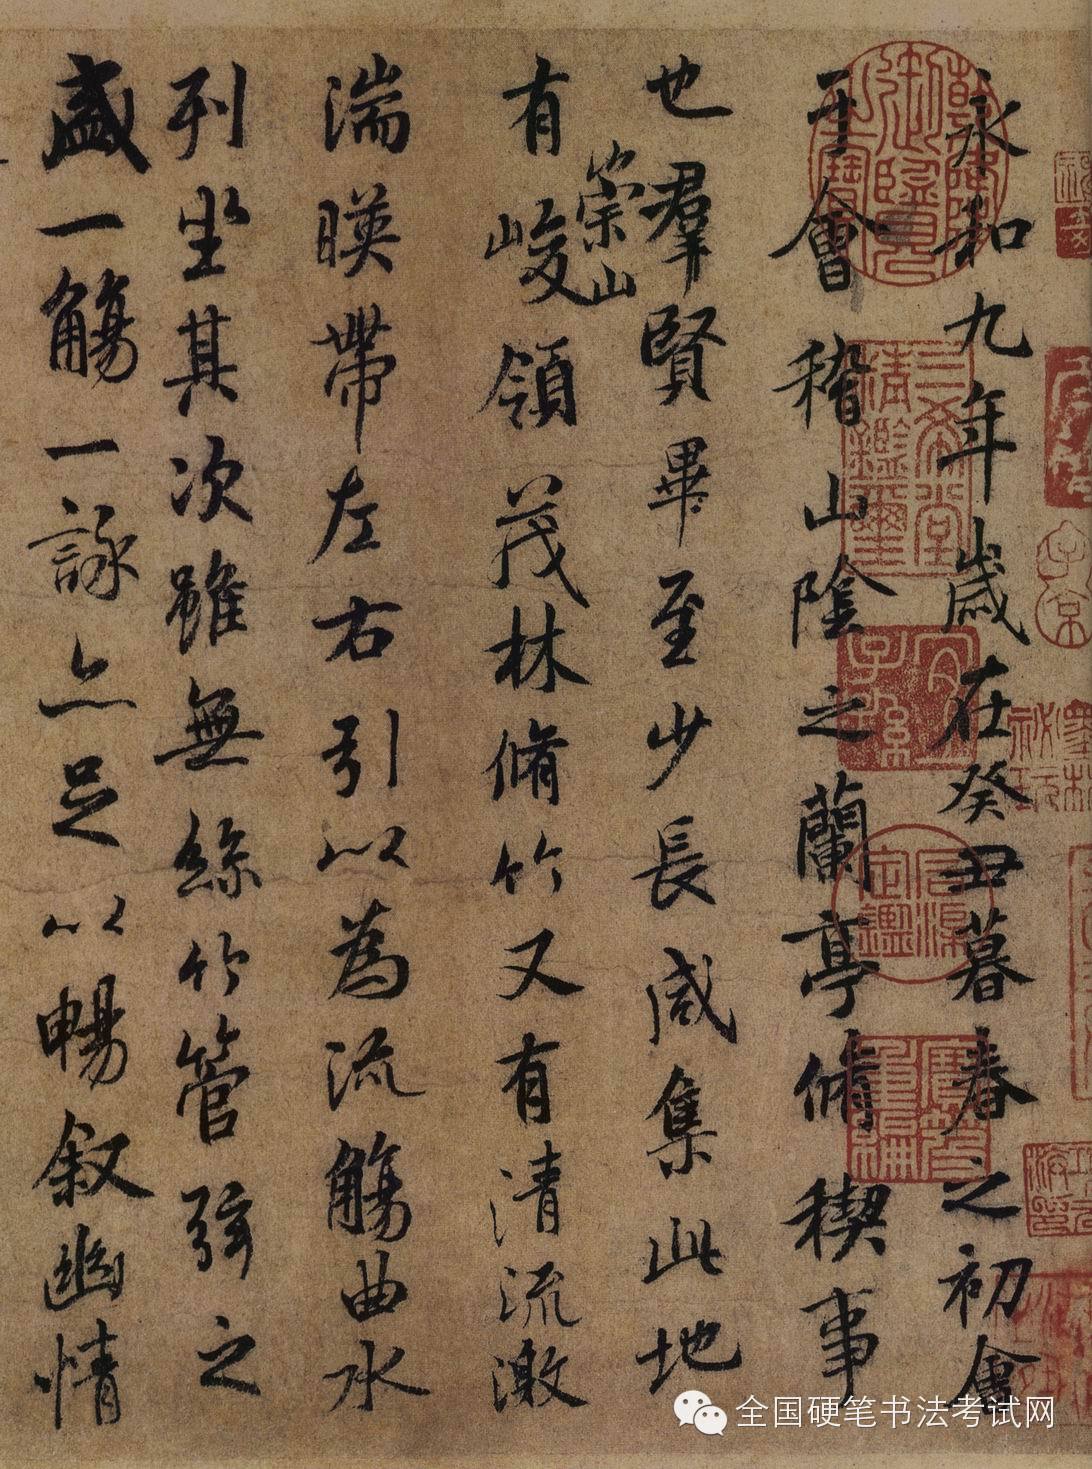 永和九年歲在癸丑暮春之初會
于會稽山陰之蘭亭脩稧事
也羣賢畢至少長咸集此地
有崇山峻領茂林脩竹又有清流激
湍暎帶左右引以為流觴曲水
列坐其次雖無絲竹管弦之
盛一觴一詠亦足以暢敘幽情
乾隆御覽之寶
三希堂精鑑璽
宜子孫
石渠定鑑
石渠寶笈
全国硬笔书法考试网